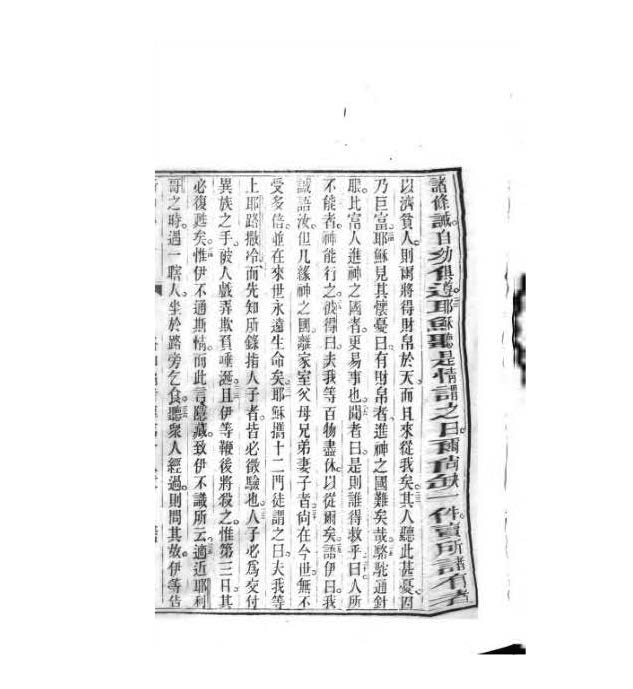 諸條誡自幼俱遵耶穌聽是情謂之曰爾尚缺一件賣所諸有者
以濟貧人則爾將得財帛於天而且來從我矣其人聽此甚憂因
乃巨富耶穌見其懷憂曰有財帛者進神之國難矣哉駱駝通針
眼比富人進神之國者更易事也聞者曰是則誰得救乎曰人所
不能者神能行之彼得曰夫我等百物盡休以從爾矣語伊曰我
誠語汝但凡緣神之國離家室父母兄弟妻子者尚在今世無不
受多倍並在來世永遠生命矣耶穌攜十二門徒謂之曰夫我等
上耶路撒冷而先知所錄指人子者皆必徵驗也人子必為交付
異族之手被人戲弄欺負唾涎且伊等鞭後將殺之惟第三日其
必復甦矣惟伊不通斯情而此言隱藏致伊不識所云適近耶利
哥之時過一瞎人坐於路旁乞食聽眾人經過則問其故伊等告